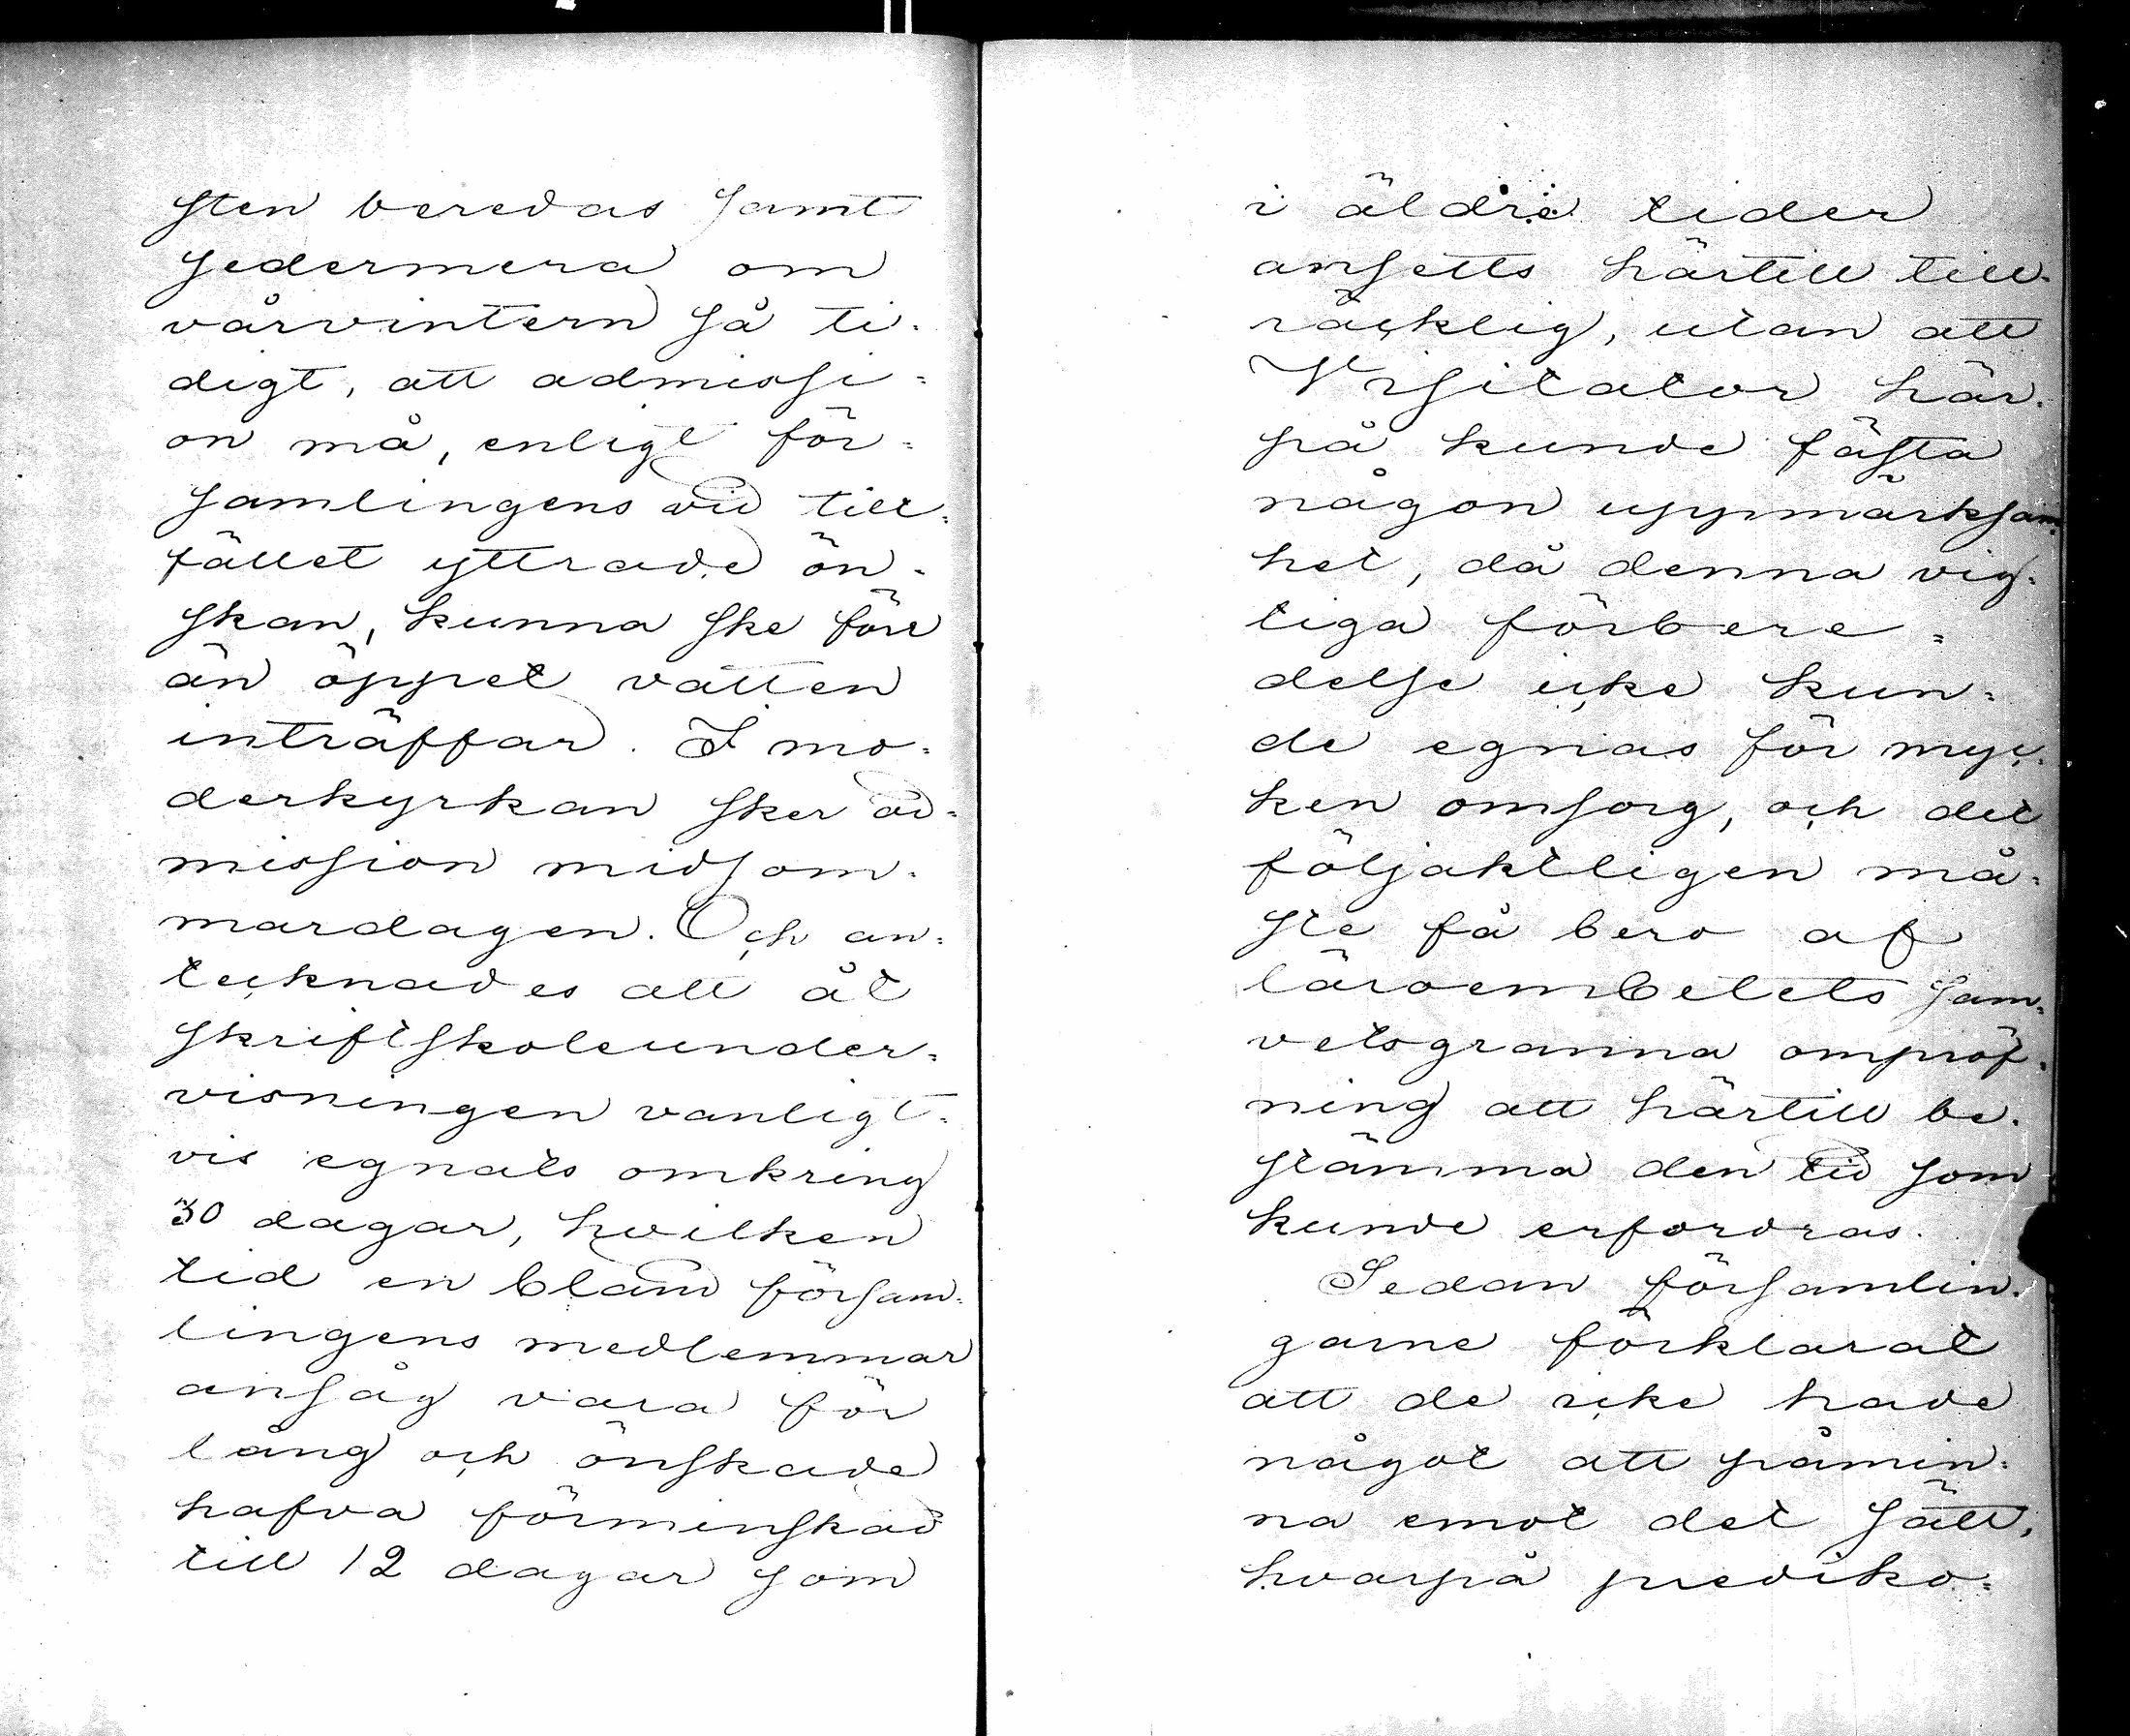 sten beredas samt
sedermera om
vårvintern så ti-
digt, att admissi=
on må, enligt för=
samlingens vid till=
fället yttrade ön-
skan, kunna ske förr
än öppet vatten
inträffar. I mo-
derkyrkan sker ad=
mission midsom-
mardagen. Och an=
tecknades att åt
skriftskoleunder=
visningen vanligt-
vis egnats omkring
30 dagar, hvilken
tid en bland försam-
lingens medlemmar
ansåg vara för
lång och önskade
hafva förminskad
till 12 dagar som
i äldre tider
ansetts härtill till-
räcklig, utan att
Visitator här-
på kunde fästa
någon uppmärksam=
het, då denna vig=
tiga förbere=
delse icke kun=
de egnas för myc-
ken omsorg, och det
följaktligen må=
ste få bero af
läroembetets sam=
vetsgranna ompröf-
ning att härtill be-
stämma den tid som
kunde erfordras.
Sedan församlin-
garne förklarat
att de icke hade
något att påmin=
na emot det sätt,
hvarpå prediko=